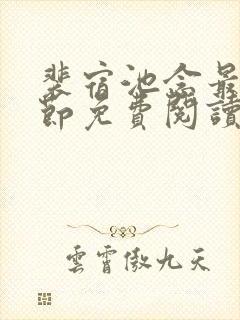 裴宿池念最
節免費閱讀
雲霄傲九天